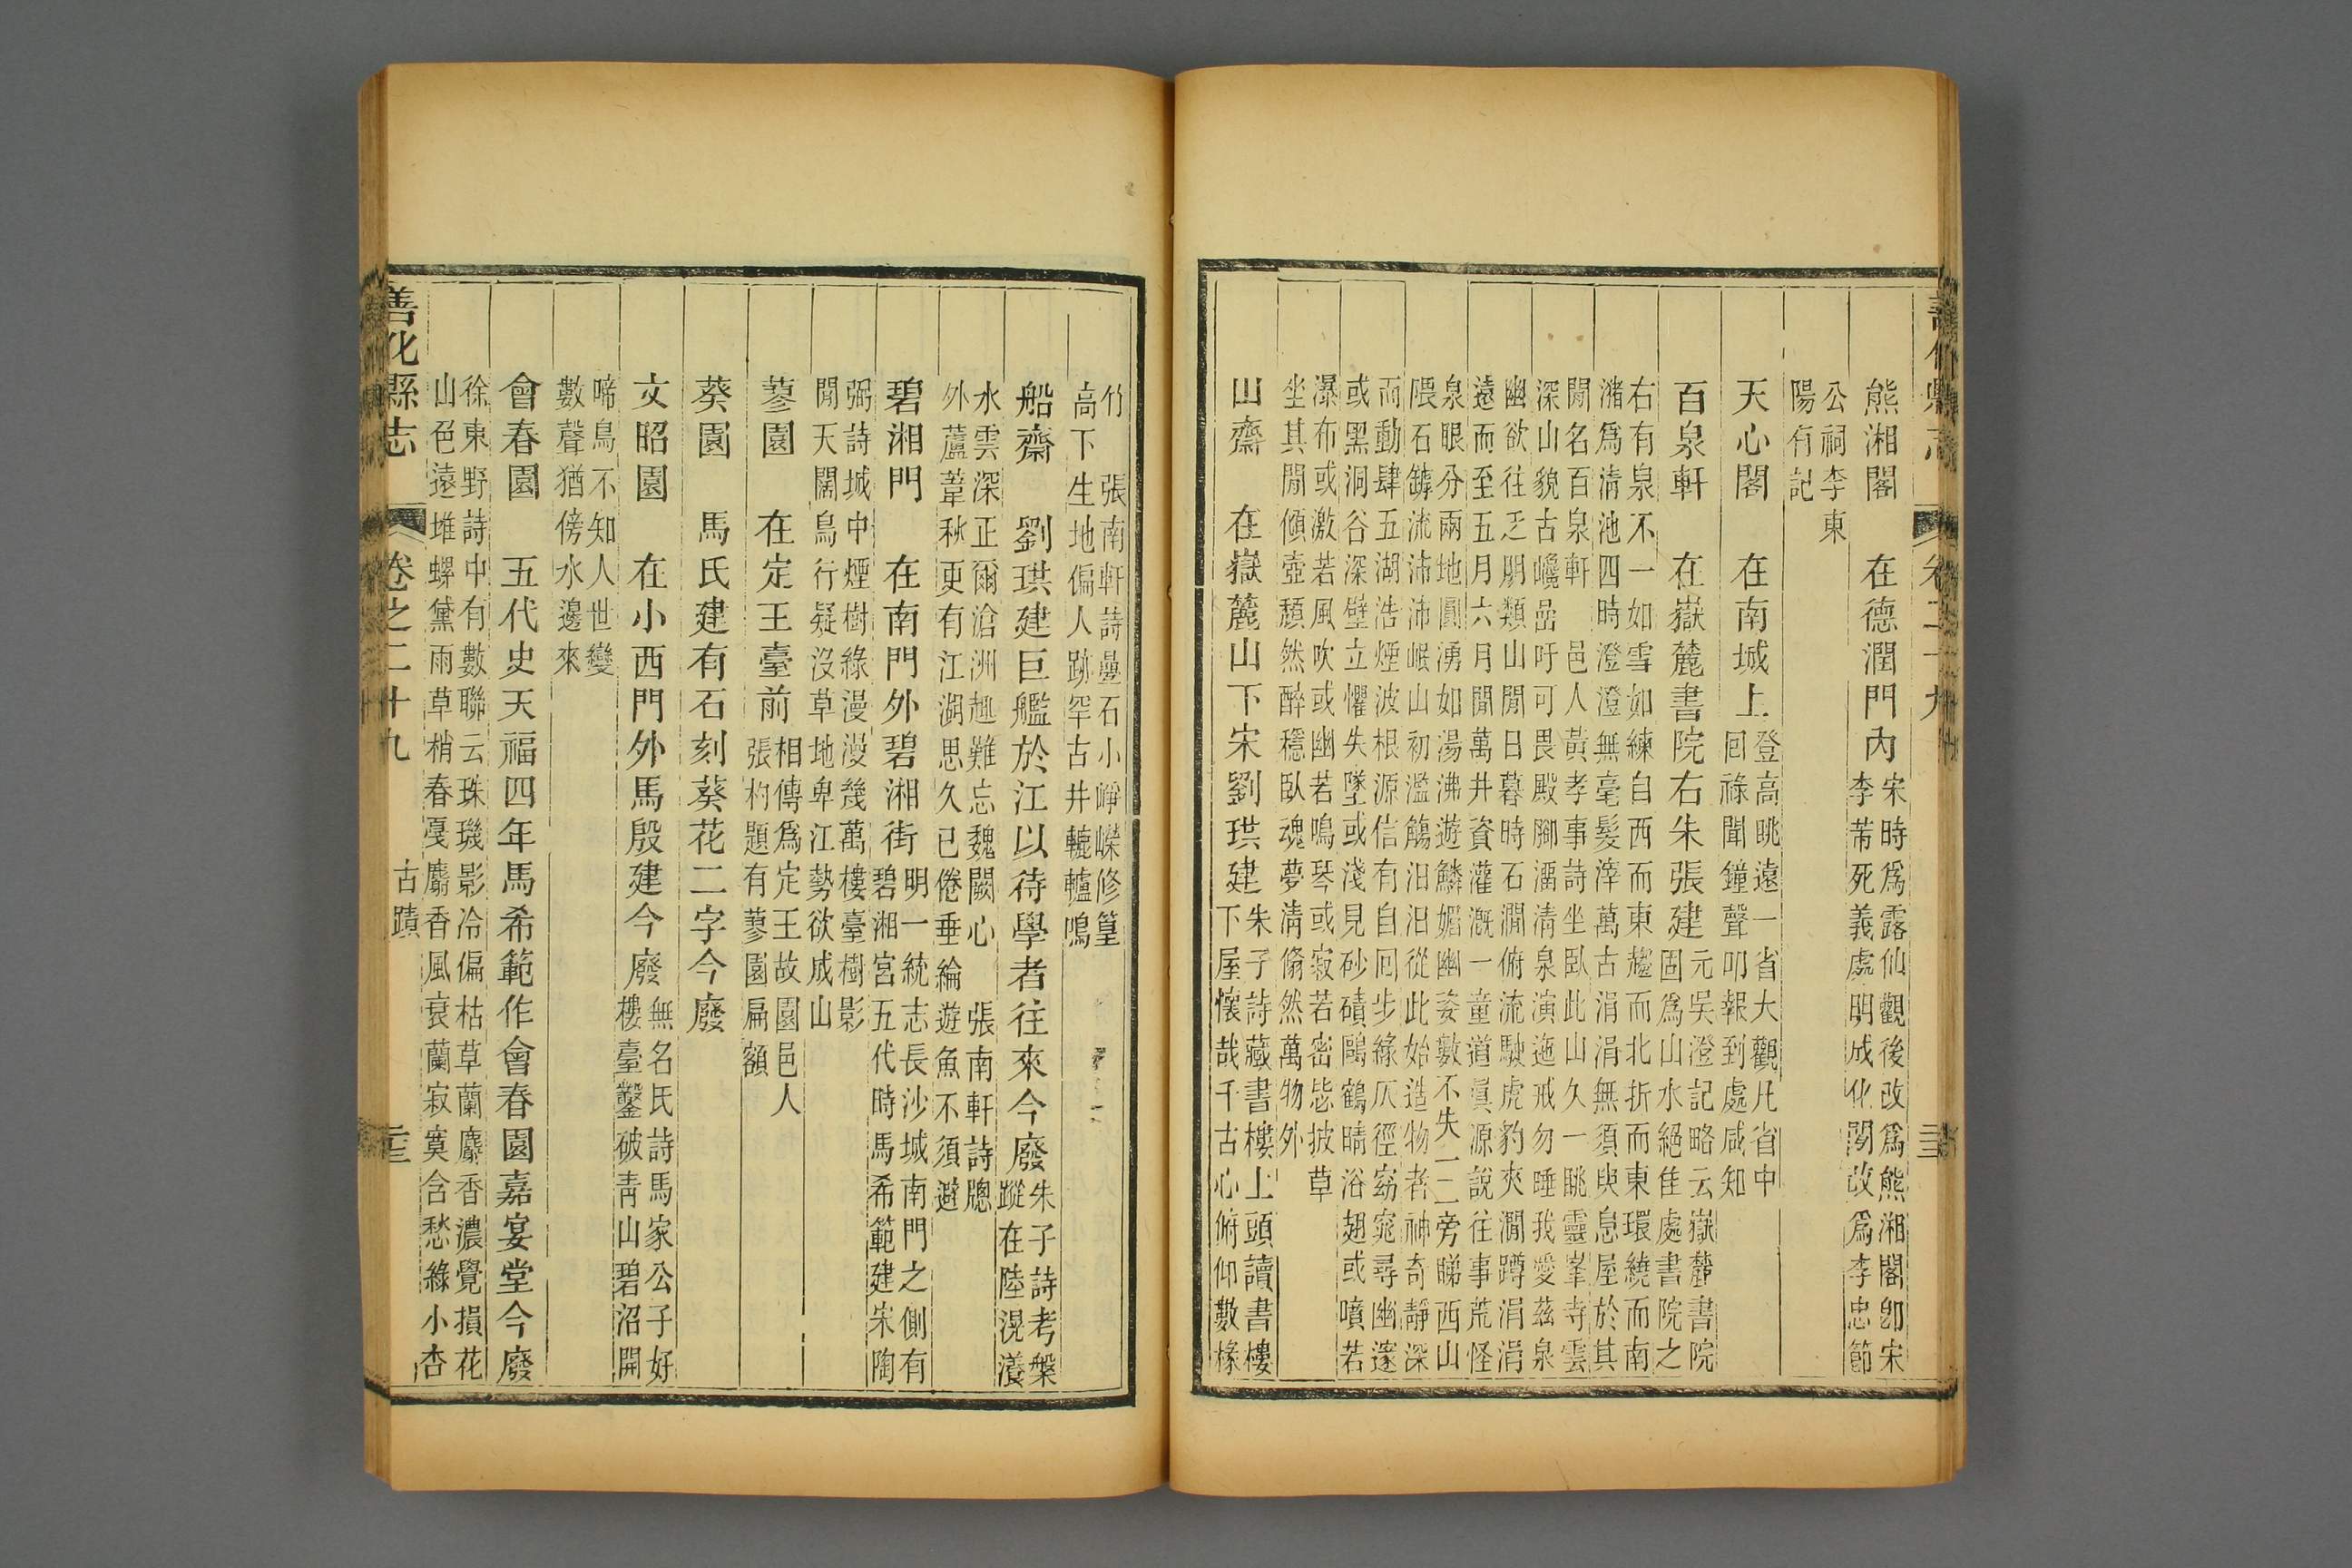 熊湘閣　在德潤門內
宋時爲露仙觀後改爲熊湘閣卽宋
李芾死義處明成化間改爲李忠節
公祠李東
陽有記
天心閣　在南城上
登高眺遠一省大觀凡省中
回祿聞鐘聲叩報到處咸知
百泉軒　在嶽麓書院右朱張建
元吳澄記略云嶽麓書院
固爲山水絕佳處書院之
右有泉不一如雪如練自西而東趨而北折而東環繞而南
瀦爲清池四時澄澄無毫髮滓萬古涓涓無須臾息屋於其
閒名百泉軒　邑人黃孝事詩坐臥此山久一眺靈峯寺雲
深山貌古巉嵒吁可畏殿腳濡清泉演迤戒勿唾我愛茲泉
幽欲往乏朋類山閒日暮時石澗俯流駛虎豹夾澗蹲涓涓
遠而至五月六月閒萬井資灌漑一童道眞源說往事荒怪
泉眼分兩地圓湧如湯沸遊鱗媚幽姿數不失一二旁睇西山
隈石罅流沛沛岷山初濫觴汨汨從此始造物者神奇靜深
而動肆五湖浩煙波根源信有自囘步緣仄徑窈窕尋幽邃
或黑洞谷深壁立懼失墜或淺見砂磧鷗鶴晴浴翅或噴若
瀑布或激若風吹或幽若鳴琴或寂若密毖披草
坐其閒傾壺頹然醉穩臥魂夢清翛然萬物外
山齋　在嶽麓山下宋劉珙建
朱子詩藏書樓上頭讀書樓
下屋懷哉千古心俯仰數椽
善化縣志　卷之二十九　古蹟
竹　張南軒詩疊石小崢嶸修篁
高下生地偏人跡罕古井轆轤鳴
船齋　劉珙建巨艦於江以待學者往來今廢
朱子詩考槃
蹤在陸滉瀁
水雲深正爾滄洲趣難忘魏闕心　張南軒詩牕
外蘆葦秋更有江湖思久已倦垂綸遊魚不須避
碧湘門　在南門外碧湘街
明一統志長沙城南門之側有
碧湘宮五代時馬希範建宋陶
弼詩城中煙樹綠漫漫幾萬樓臺樹影
閒天闊鳥行疑沒草地卑江勢欲成山
蓼園　在定王臺前
相傳爲定王故園邑人
張杓題有蓼園扁額
葵園　馬氏建有石刻葵花二字今廢
文昭園　在小西門外馬殷建今廢
無名氏詩馬家公子好
樓臺鑿破青山碧沼開
啼鳥不知人世變
數聲猶傍水邊來
會春園　五代史天福四年馬希範作會春園嘉宴堂今廢
徐東野詩中有數聯云珠璣影冷偏枯草蘭麝香濃覺損花
山色遠堆螺黛雨草梢春戛麝香風哀蘭寂寞含愁綠小杏